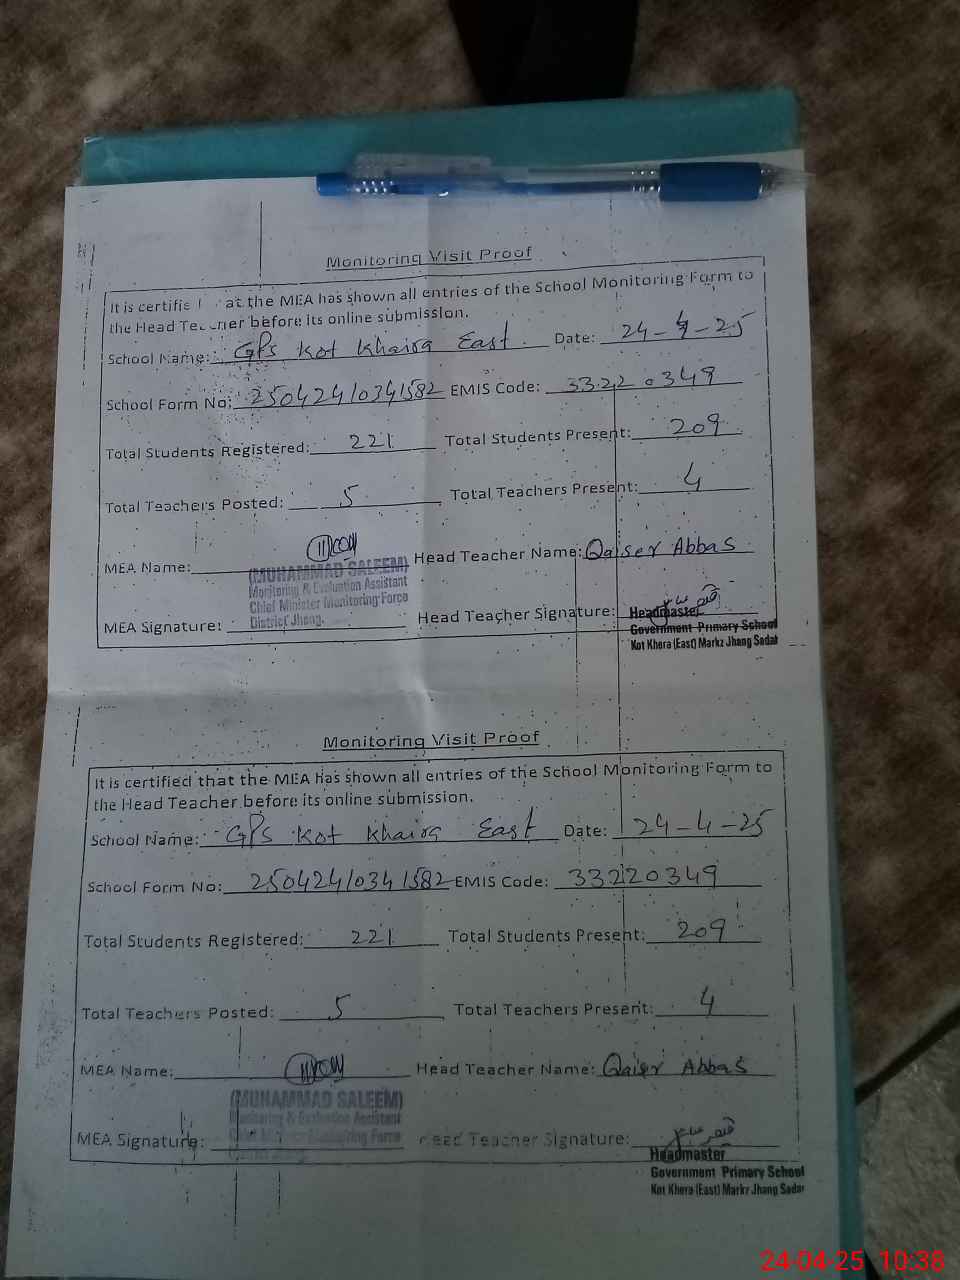 Monitoring Visit Proof
It is certifie at the MEA has shown all entries of the School Monitoring Form to
the Head Teacher before its online submission.
School Name: GPS Kot Khaira East Date: 24-4-25
School Form No: 25042410341582 EMIS Code: 33220349
Total Students Registered: 221 Total Students Present: 209
Total Teachers Posted: 5 Total Teachers Present: 4
MEA Name: Head Teacher Name: Qaiser Abbas
(MUHAMMAD SALEEM)
Monitoring & Evaluation Assistant
Chief Minister Monitoring Force
District Jhang.
MEA Signature: Head Teacher Signature:
Headmaster
Government Primary School
Kot Khera (East) Markz Jhang Sadar
Monitoring Visit Proof
It is certified that the MEA has shown all entries of the School Monitoring Form to
the Head Teacher before its online submission.
School Name: GPS Kot Khaira East Date: 24-4-25
School Form No: 25042410341582 EMIS Code: 33220349
Total Students Registered: 221 Total Students Present: 209
Total Teachers Posted: 5 Total Teachers Present: 4
MEA Name: Head Teacher Name: Qaiser Abbas
(MUHAMMAD SALEEM)
Monitoring & Evaluation Assistant
Chief Minister Monitoring Force
District Jhang.
MEA Signature: Head Teacher Signature:
Headmaster
Government Primary School
Kot Khera (East) Markz Jhang Sadar
24-04-25 10:38